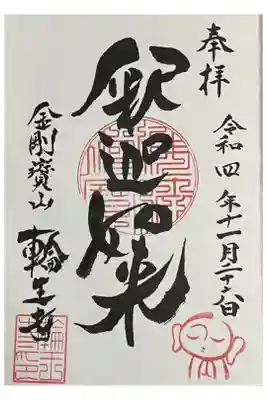 奉拝
令和四年十一月二十六日
釈迦如来
金剛寶山
輪王寺